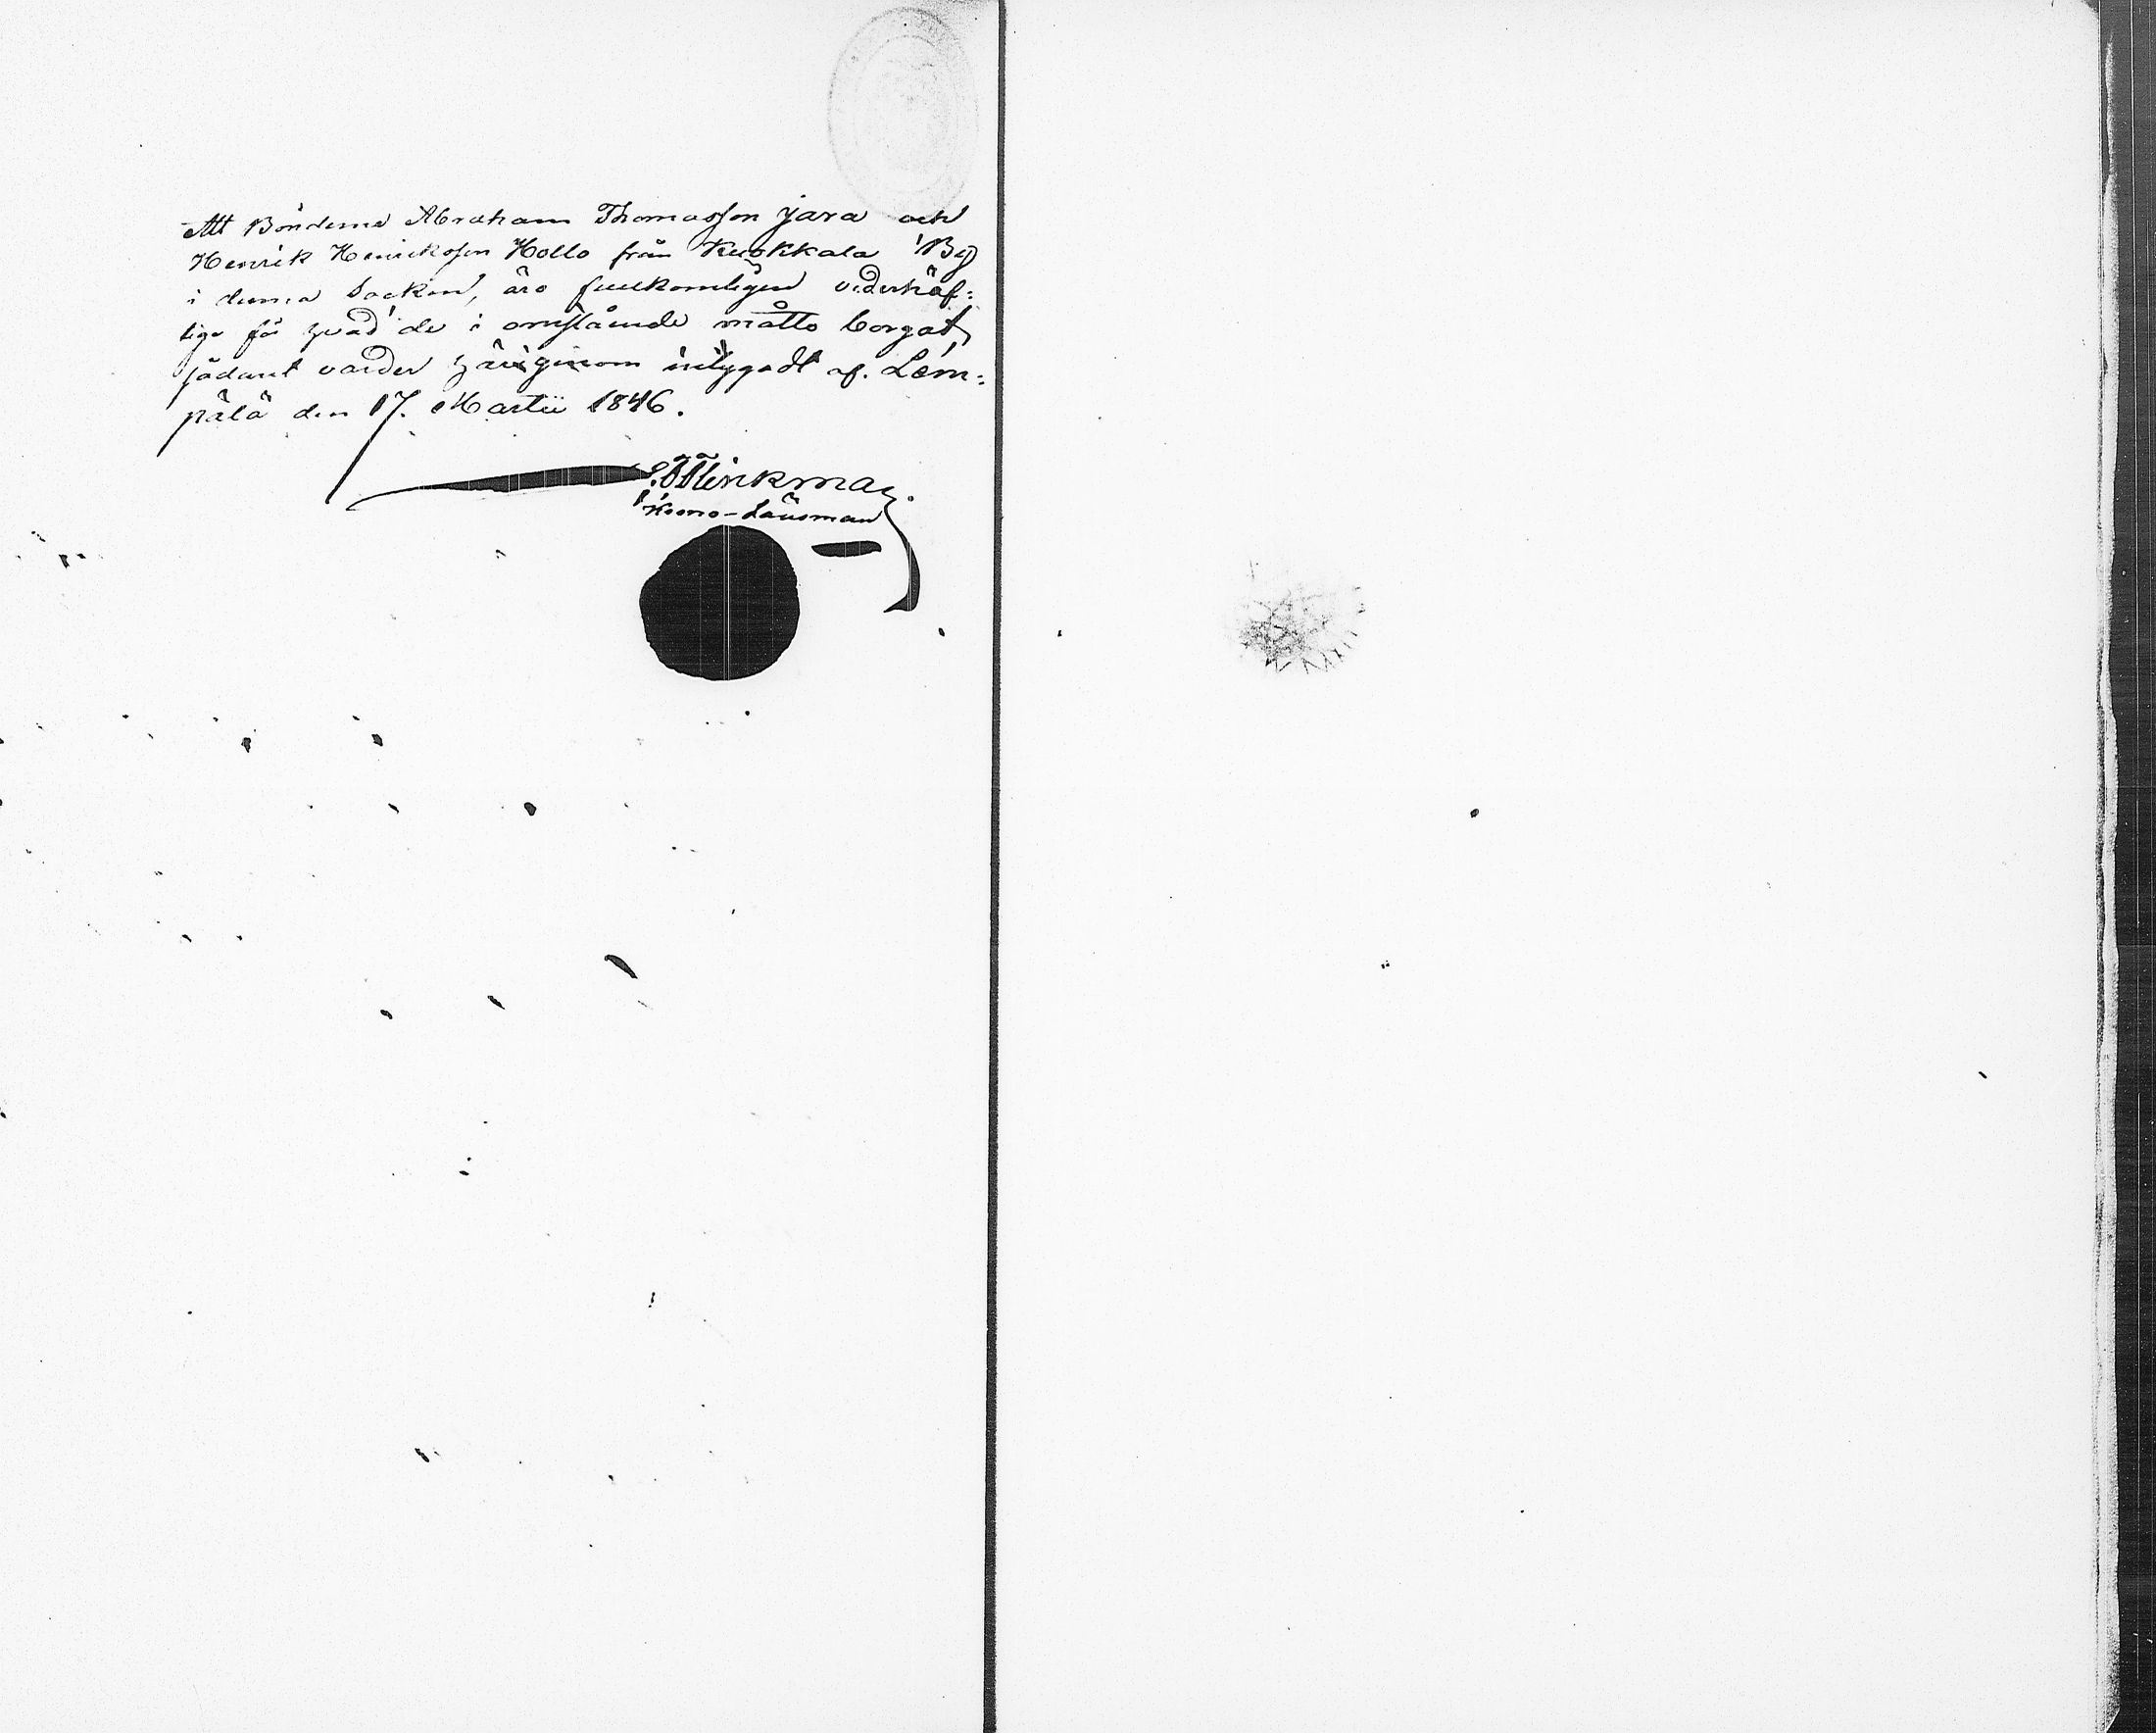 Att Bönderne Abraham Thomasson Jara och
Henrik Henricksson Hollo från Kuokkala By
i denna Sockn, äro fullkomligen vederhäf=
tige för hvad de i omstående måtto borgat,
sådant varder härigenom intygadt af. Lem=
pälä den 17. Martii 1846.
Krono-Länsman